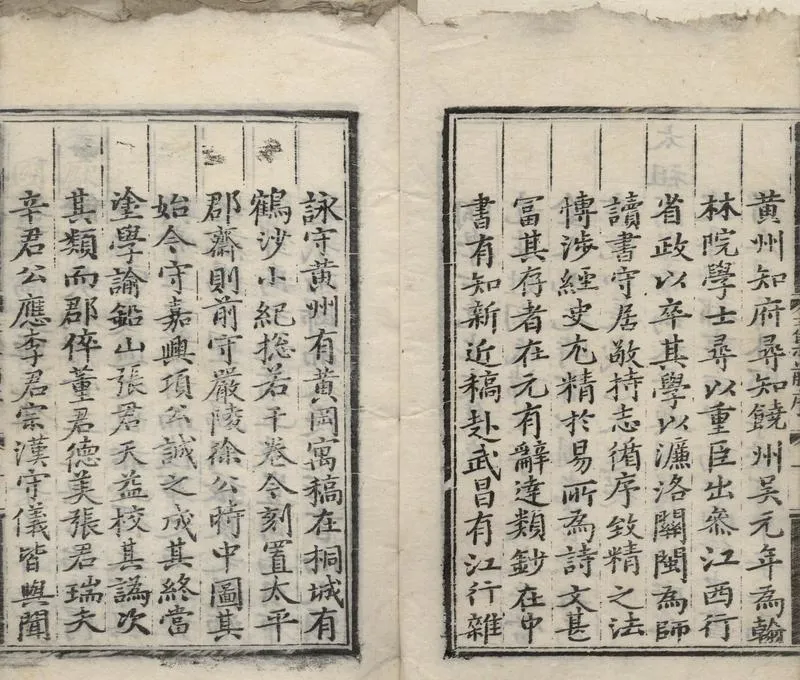 黃州知府尋知饒州吳元年為翰
林院學士尋以重臣出叅江西行
省政以卒其學以濂洛關閩為師
讀書守居敬持志循序致精之法
愽涉經史尢精於易所為詩文甚
冨其存者在元有辭達類鈔在中
書有知新近稿赴武昌有江行雜
詠守黃州有黃岡寓稿在桐城有
鶴沙小紀捴若干卷今刻置太平
郡齋則前守嚴陵徐公時中圖其
始今守嘉興項公誠之成其終當
塗學諭鉛山張君天益校其譌次
其類而郡倅董君德美張君瑞夫
辛君公應李君宗漢守儀皆與聞